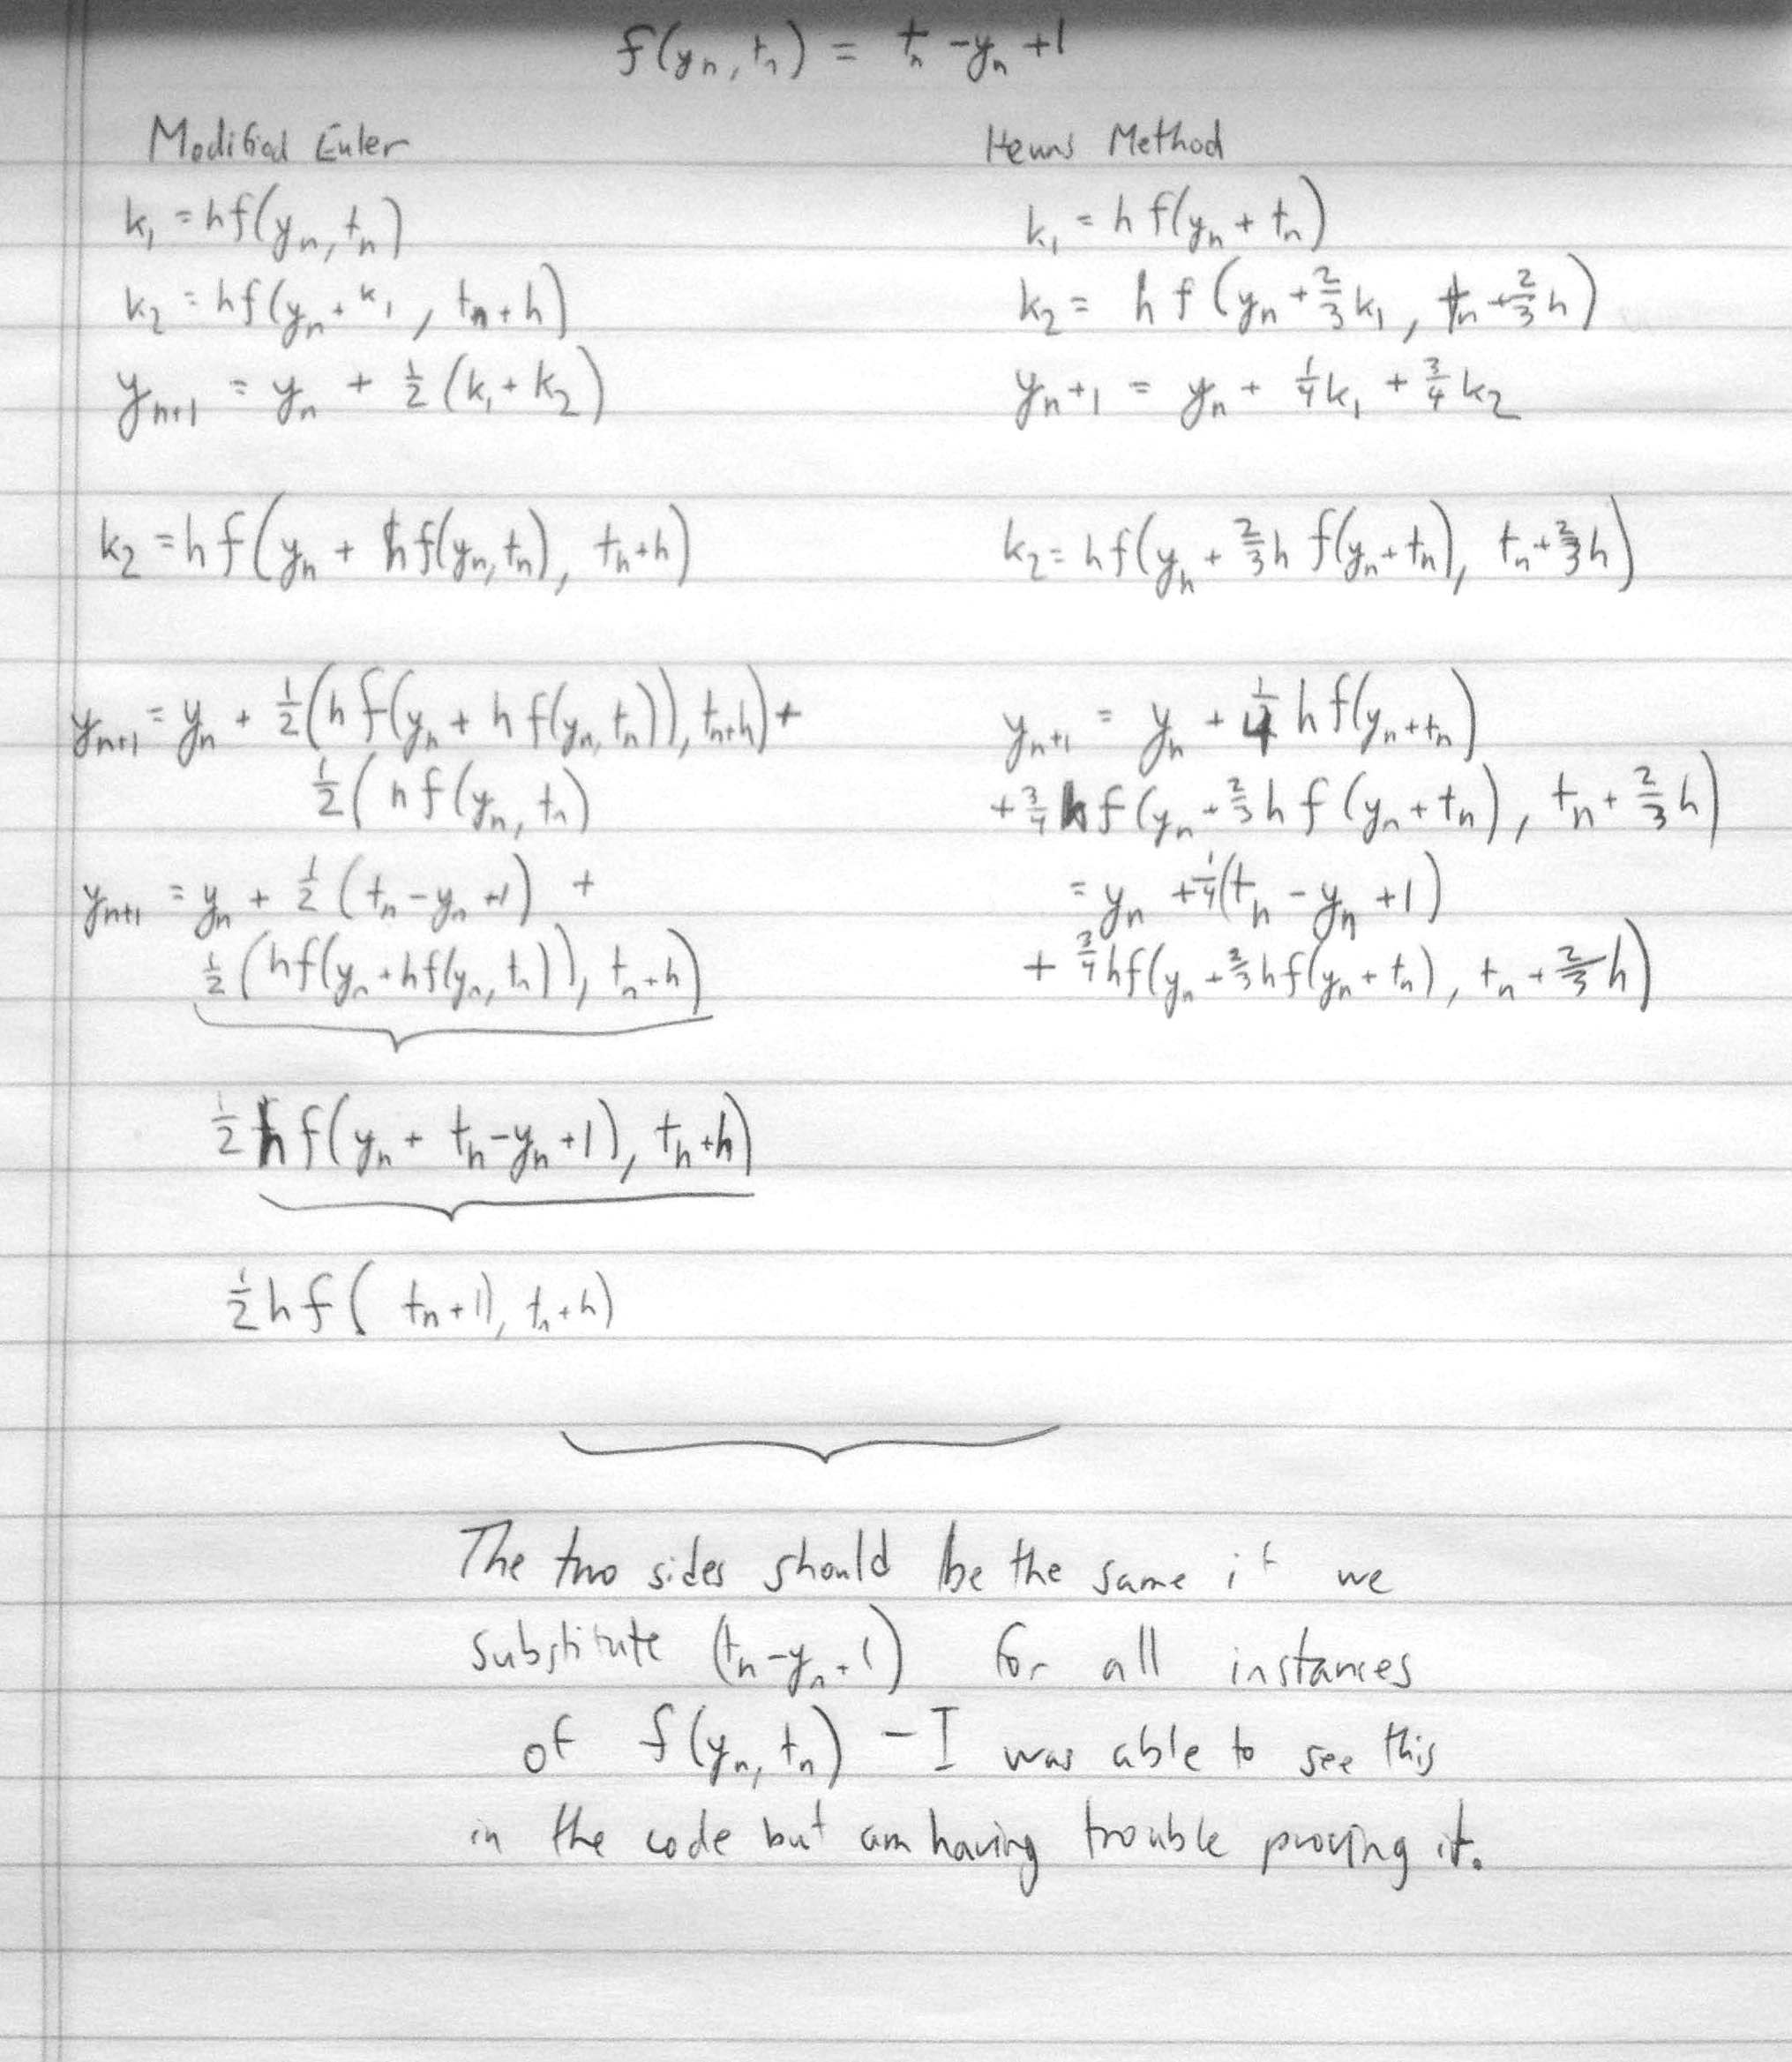 f(yn, tn) = tn - yn + 1
Modified Euler
k1 = hf(yn, tn)
k2 = hf(yn + k1, tn + h)
yn+1 = yn + 1/2 (k1 + k2)
k2 = hf(yn + hf(yn, tn), tn + h)
yn+1 = yn + 1/2 (hf(yn + hf(yn, tn)), tn + h) +
1/2 (hf(yn, tn)
yn+1 = yn + 1/2 (tn - yn + 1) +
1/2 (hf(yn + hf(yn, tn)), tn + h)
1/2 hf(yn + tn - yn + 1), tn + h)
1/2 hf( tn + 1), tn + h)
Heuns Method
k1 = h f(yn + tn)
k2 = h f(yn + 2/3 k1, tn + 2/3 h)
yn+1 = yn + 1/4 k1 + 3/4 k2
k2 = hf(yn + 2/3 h f(yn + tn), tn + 2/3 h)
yn+1 = yn + 1/4 h f(yn + tn)
+ 3/4 hf(yn + 2/3 h f(yn + tn), tn + 2/3 h)
= yn + 1/4 (tn - yn + 1)
+ 3/4 hf(yn + 2/3 hf(yn + tn), tn + 2/3 h)
The two sides should be the same if we
substitute (tn - yn + 1) for all instances
of f(yn, tn) - I was able to see this
in the code but am having trouble proving it.